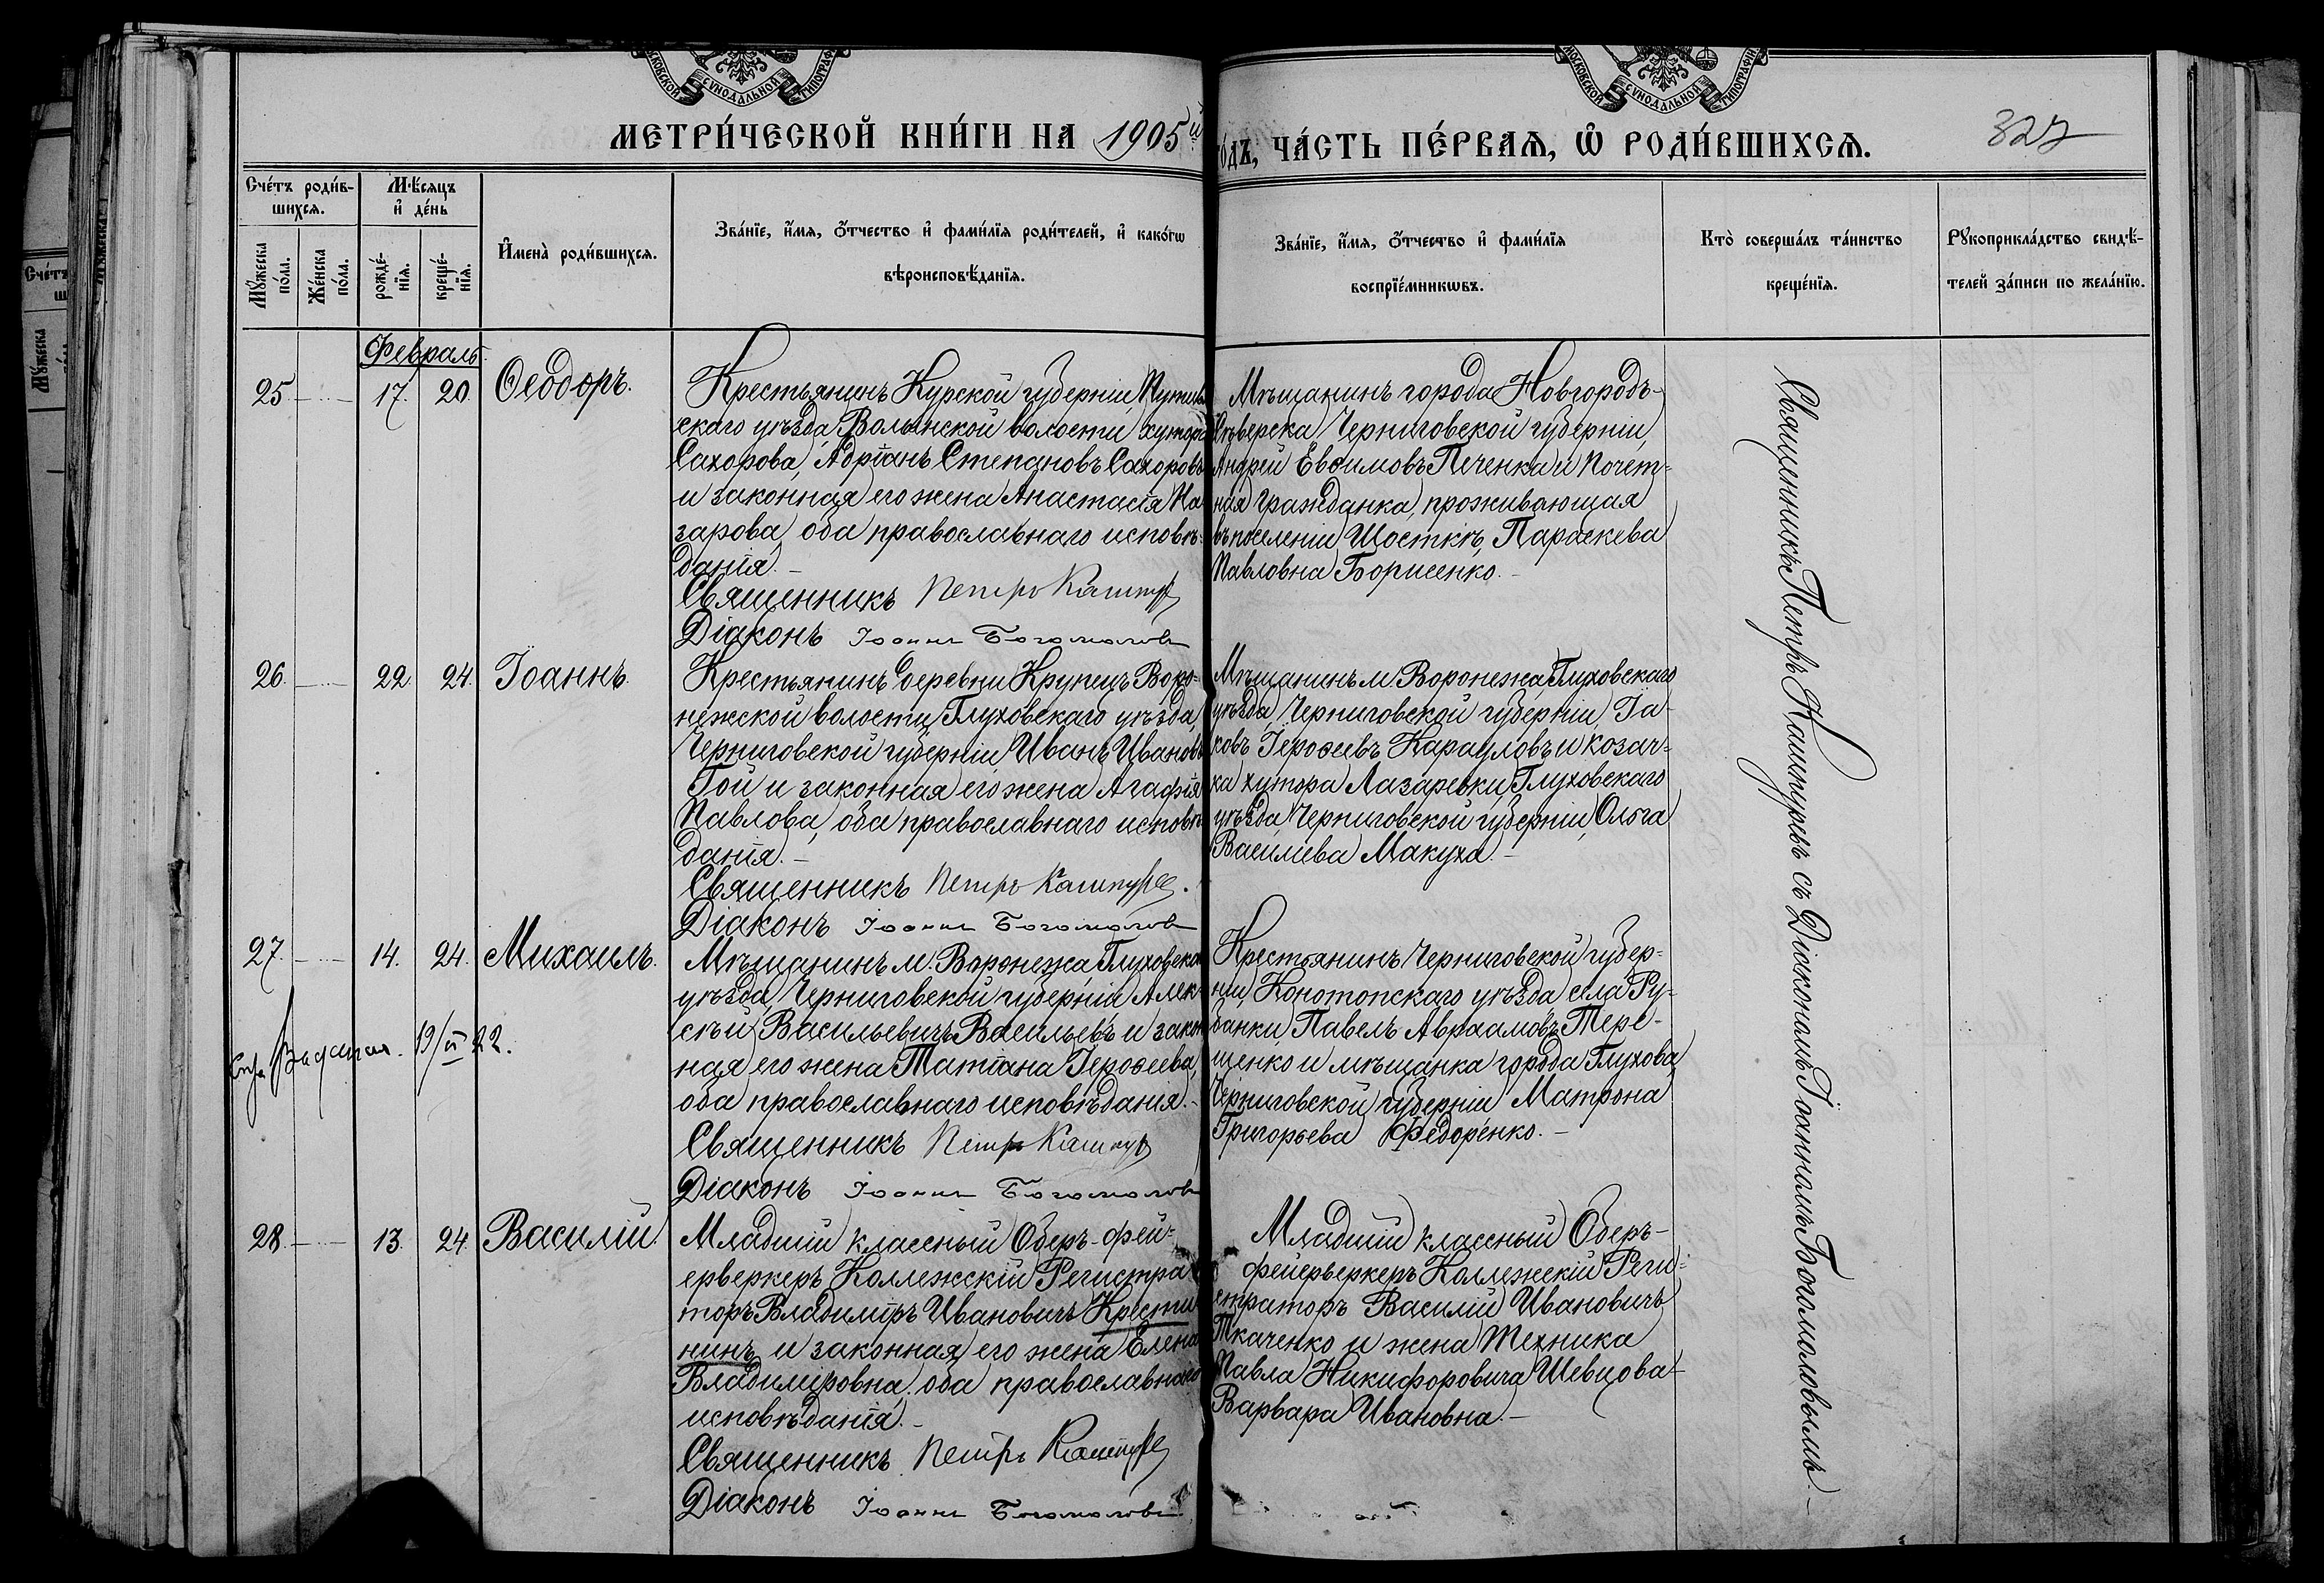 МОСКОВСКОЙ СѴНОДАЛЬНОЙ ТИПОГРАФІИ
МОСКОВСКОЙ СѴНОДАЛЬНОЙ ТИПОГРАФІИ
МЕТРИ́ЧЕСКОЙ КНИ́ГИ НА 1905й
го́дъ, ЧА́СТЬ ПЕ́РВАѦ, Ѡ҆ РОДИ́ВШИХСѦ.
327
Сче́тъ роди́в-
шихсѧ.
Мѣ́сѧцъ
и҆ де́нь
Мꙋ́жеска
по́ла.
Же́нска
по́ла.
рожде́-
нїѧ.
креще́-
нїѧ.
И҆мена̀ роди́вшихсѧ.
Зва́нїе, и҆́мѧ, ѻ҆́тчество и҆ фами́лїѧ роди́телей, и҆ како́гѡ
вѣроисповѣ́данїѧ.
Зва́нїе, и҆́мѧ, ѻ҆́тчество и҆ фами́лїѧ
воспрїе́мникѡвъ.
Кто̀ соверша́лъ та́инство
креще́нїѧ.
Рꙋкоприкла́дство свидѣ́-
телей за́писи по жела́нїю.
Февраль.
25 17. 20. Ѳеодоръ.
Крестьянинъ Курской губерніи, Путивль
скаго уѣзда, Волынской волости, хутора
Сахорова, Адріанъ Степановъ Сахоровъ
и законная его жена Анастасія На
зарова, оба православнаго исповѣ-
данія.
Священникъ Петръ Кашпуръ
Діаконъ Іоаннъ Богомоловъ
Мѣщанинъ города Новгородъ-
Сѣверска Черниговской губерніи,
Андрей Евѳимовъ Печенка и почет-
ная гражданка, проживающая
въ поселеніи Шосткѣ, Параскева
Павловна Борисенко.
26. 22 24. Іоаннъ.
Крестьянинъ деревни Крупецъ Воро-
нежской волости, Глуховскаго уѣзда,
Черниговской губерніи Иванъ Ивановъ
Гой и законная его жена Агафія
Павлова, оба православнаго исповѣ
данія.
Священникъ Петръ Кашпуръ.
Діаконъ Іоаннъ Богомоловъ
Мѣщанинъ м. Воронежа Глуховскаго
уѣзда, Черниговской губерніи, Іа-
ковъ Іероѳеевъ Карауловъ и козач-
ка хутора Лазаревки, Глуховскаго
уѣзда, Черниговской губерніи, Ольга
Василіева Макуха.
27. 14. 24. Михаилъ.
Мѣщанинъ м. Воронежа Глуховска
уѣзда, Черниговской губерніи Алек-
сѣй Васильевичъ Васильевъ и закон
ная его жена Татіана Іероѳеева,
оба православнаго исповѣданія.
Священникъ Петръ Кашпуръ
Діаконъ Іоаннъ Богомоловъ
Крестьянинъ Черниговской губер-
ніи, Конотопскаго уѣзда села Ру-
банки Павелъ Авраамовъ Тере-
щенко и мѣщанка города Глухова,
Черниговской губерніи Матрона
Григорьева Федоренко.
22.
28 13. 24. Василій.
Младшій классный Оберъ-фей-
ерверкеръ Коллежскій Регистра
торъ Владиміръ Ивановичъ Крести
нинъ и законная его жена Елена
Владиміровна, оба православнаго
исповѣданія.
Священникъ Петръ Кашпуръ
Діаконъ Іоаннъ Богомоловъ
Младшій классный Оберъ-
фейерверкеръ Коллежскій Реги-
страторъ Василій Ивановичъ
Ткаченко и жена техника
Павла Никифоровича Шевцова
Варвара Ивановна.
Священникъ Петръ Кашпуръ съ Діакономъ Іоанномъ Богомоловымъ.